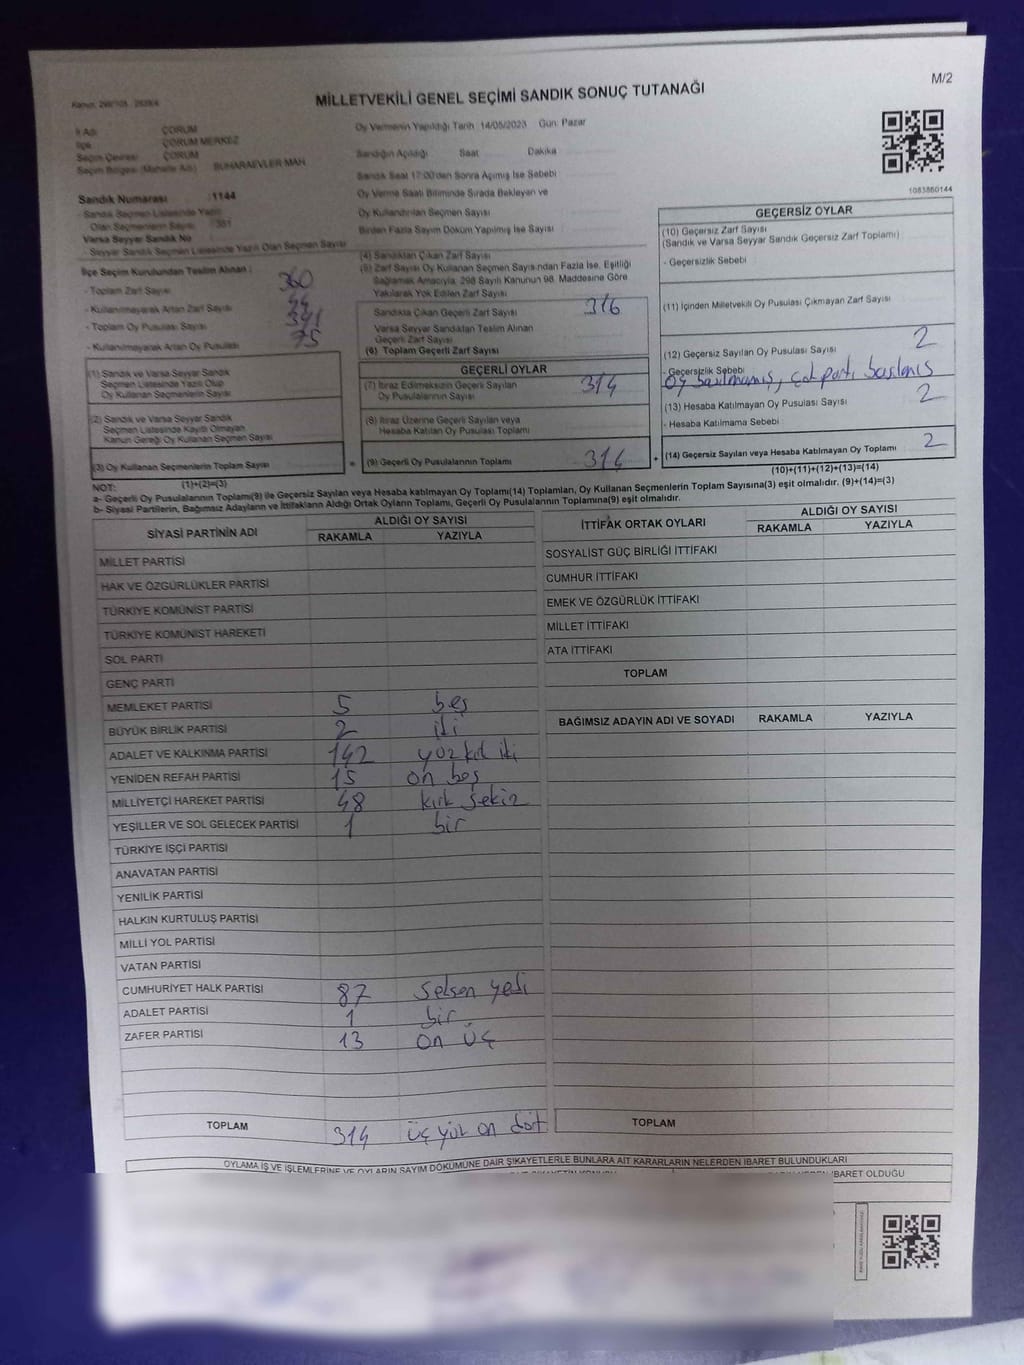 M/2
MİLLETVEKİLİ GENEL SEÇİMİ SANDIK SONUÇ TUTANAĞI
İl Adı ÇORUM
İlçe ÇORUM MERKEZ
Seçim Çevresi ÇORUM
Seçim Bölgesi (Mahalle Adı) BUHARAEVLER MAH
Sandık Numarası :1144
- Sandık Seçmen Listesinde Yazılı
Olan Seçmenlerin Sayısı
Varsa Seyyar Sandık No
- Seyyar Sandık Seçmen Listesinde Yazılı Olan Seçmen Sayısı
Oy Vermenin Yapıldığı Tarih 14/05/2023 Gün: Pazar
Sandığın Açıldığı Saat Dakika
Sandık Saat 17:00'den Sonra Açımış İse Sebebi
Oy Verme Saati Bitiminde Sırada Bekleyen ve
Oy Kullandırılan Seçmen Sayısı
Birden Fazla Sayım Döküm Yapılmış İse Sayısı
1083860144
İlçe Seçim Kurulundan Teslim Alınan :
- Toplam Zarf Sayısı 360
- Kullanılmayarak Artan Zarf Sayısı 44
- Toplam Oy Pusulası Sayısı 391
- Kullanılmayarak Artan Oy Pusulası 75
(1) Sandık ve Varsa Seyyar Sandık
Seçmen Listesinde Yazılı Olup
Oy Kullanan Seçmenlerin Sayısı
(2) Sandık ve Varsa Seyyar Sandık
Seçmen Listesinde Kayıtlı Olmayan
Kanun Gereği Oy Kullanan Seçmen Sayısı
(3) Oy Kullanan Seçmenlerin Toplam Sayısı
(1)+(2)=(3)
(4) Sandıktan Çıkan Zarf Sayısı
(5) Zarf Sayısı Oy Kullanan Seçmen Sayısından Fazla İse, Eşitliği
Sağlamak Amacıyla, 298 Sayılı Kanunun 98. Maddesine Göre
Yakılarak Yok Edilen Zarf Sayısı
Sandıkta Çıkan Geçerli Zarf Sayısı 316
Varsa Seyyar Sandıktan Teslim Alınan
Geçerli Zarf Sayısı
(6) Toplam Geçerli Zarf Sayısı
GEÇERLİ OYLAR
(7) İtiraz Edilmeksizin Geçerli Sayılan
Oy Pusulalarının Sayısı 314
(8) İtiraz Üzerine Geçerli Sayılan veya
Hesaba Katılan Oy Pusulası Toplamı
= (9) Geçerli Oy Pusulalarının Toplamı 314
GEÇERSİZ OYLAR
(10) Geçersiz Zarf Sayısı
(Sandık ve Varsa Seyyar Sandık Geçersiz Zarf Toplamı)
- Geçersizlik Sebebi
(11) İçinden Milletvekili Oy Pusulası Çıkmayan Zarf Sayısı
(12) Geçersiz Sayılan Oy Pusulası Sayısı 2
- Geçersizlik Sebebi
(13) Hesaba Katılmayan Oy Pusulası Sayısı 2
- Hesaba Katılmama Sebebi
+ (14) Geçersiz Sayılan veya Hesaba Katılmayan Oy Toplamı 2
(10)+(11)+(12)+(13)=(14)
NOT:
a- Geçerli Oy Pusulalarının Toplamı(9) ile Geçersiz Sayılan veya Hesaba katılmayan Oy Toplamı(14) Toplamları, Oy Kullanan Seçmenlerin Toplam Sayısına(3) eşit olmalıdır. (9)+(14)=(3)
b- Siyasi Partilerin, Bağımsız Adayların ve İttifakların Aldığı Ortak Oyların Toplamı, Geçerli Oy Pusulalarının Toplamına(9) eşit olmalıdır.
SİYASİ PARTİNİN ADI ALDIĞI OY SAYISI
RAKAMLA YAZIYLA
MİLLET PARTİSİ
HAK VE ÖZGÜRLÜKLER PARTİSİ
TÜRKİYE KOMÜNİST PARTİSİ
TÜRKİYE KOMÜNİST HAREKETİ
SOL PARTİ
GENÇ PARTİ
MEMLEKET PARTİSİ 5 beş
BÜYÜK BİRLİK PARTİSİ 2 iki
ADALET VE KALKINMA PARTİSİ 142 yüz kırk iki
YENİDEN REFAH PARTİSİ 15 on beş
MİLLİYETÇİ HAREKET PARTİSİ 48 kırk sekiz
YEŞİLLER VE SOL GELECEK PARTİSİ 1 bir
TÜRKİYE İŞÇİ PARTİSİ
ANAVATAN PARTİSİ
YENİLİK PARTİSİ
HALKIN KURTULUŞ PARTİSİ
MİLLİ YOL PARTİSİ
VATAN PARTİSİ
CUMHURİYET HALK PARTİSİ 87 seksen yedi
ADALET PARTİSİ 1 bir
ZAFER PARTİSİ 13 on üç
TOPLAM 314 üç yüz on dört
İTTİFAK ORTAK OYLARI ALDIĞI OY SAYISI
RAKAMLA YAZIYLA
SOSYALİST GÜÇ BİRLİĞİ İTTİFAKI
CUMHUR İTTİFAKI
EMEK VE ÖZGÜRLÜK İTTİFAKI
MİLLET İTTİFAKI
ATA İTTİFAKI
TOPLAM
BAĞIMSIZ ADAYIN ADI VE SOYADI RAKAMLA YAZIYLA
TOPLAM
OYLAMA İŞ VE İŞLEMLERİNE VE OYLARIN SAYIM DÖKÜMÜNE DAİR ŞİKAYETLERLE BUNLARA AİT KARARLARIN NELERDEN İBARET BULUNDUKLARI
İBARET OLDUĞU